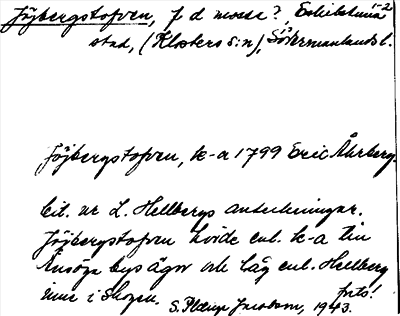 Jöjbergstorfven, f d mosse?, Eskilstuna 1-2
stad, (Klosters s:n), Södermanlands l.
Jöjbergstorfven, k-a 1799 Eric Åkerberg.
Cit. ur L. Hellbergs anteckningar.
Jöjbergstorfven hörde enl. k-a till
Årsöga bys ägor och låg enl. Hellberg
inne i skogen. foto!
S. Jacobson, 1943.